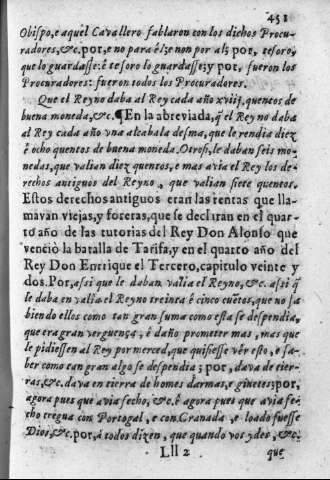 451
Obispo, e aquel Cavallero fablaron con los dichos Procu-
radores, &c. por, e no para él; e non por al; por, tesoro,
que lo guardasse: é tesoro lo guardasse; y por, fueron los
Procuradores: fueron todos los Procuradores.
Que el Reyno daba al Rey cada año xviij. quentos de
buena moneda, &c. ¶En la abreviada, q̃ el Reyno daba
al Rey cada año vna alcabala desma, que le rendia diez
é ocho quentos de buena moneda. Otrosi, le daban seis mo-
nedas, que valian diez quentos, e mas avia el Rey los de-
rechos antiguos del Reyno, que valian siete quentos.
Estos derechos antiguos eran las rentas que lla-
mavan viejas, y foreras, que se declaran en el quar-
to año de las tutorias del Rey Don Alonso que
venciò la batalla de Tarifa, y en el quarto año del
Rey Don Enrique el Tercero, capitulo veinte y
dos. Por, assi que le daban valia el Reyno, &c. assi q̃
le daba en valia el Reyno treinta é cinco cuẽtos, que no sa
biendo ellos como tan gran suma como esta se despendia,
que era gran verguença, é daño prometer mas, mas que
le pidiessen al Rey por merced, que quisiesse vèr esto, e sa-
ber como tan gran algo se despendia; por, dava de tier-
ras, &c. dava en tierra de homes darmas, e ginetes; por,
agora pues que avia fecho, &c. é agora pues que avia fe-
cho tregua con Portogal, e con Granada, e loado fuesse
Dios, &c. por, á todos dizen, que quando vos ydes, &c.
Lll 2
que